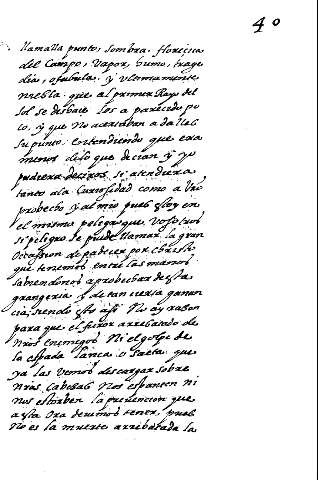 40
llamalla punto, sombra, florezica
del Campo, Vapor, humo, trage
dia, o fabula. y ultimamente
niebla. que al primer Rayo del
sol se desbace. los a parecido po
co, y que no acertaban a dalles
su punto: entendiendo que era
menos de lo que decian y yo
pudiera deciros si atendiera
tanto a la Curiosidad como a Vro
probecho y al mio pues estoy en
el mismo peligro que Vosotros
si peligro se puede llamar la gran
Occassion de padecer por Christo
que tenemos entre las manos
sabiendonos aprobechar de esta
grangeria y de tan cierta ganan
cia; siendo esto assi. No ay razon
para que el furor arrebatado de
nros enemigos. Ni el golpe de
la espada lança o Saeta que
ya las vemos descargar sobre
nras Cabeças Nos espanten ni
nos estorben la prevencion que
a esta Ora devemos tener, pues
no es la muerte arrebatada la